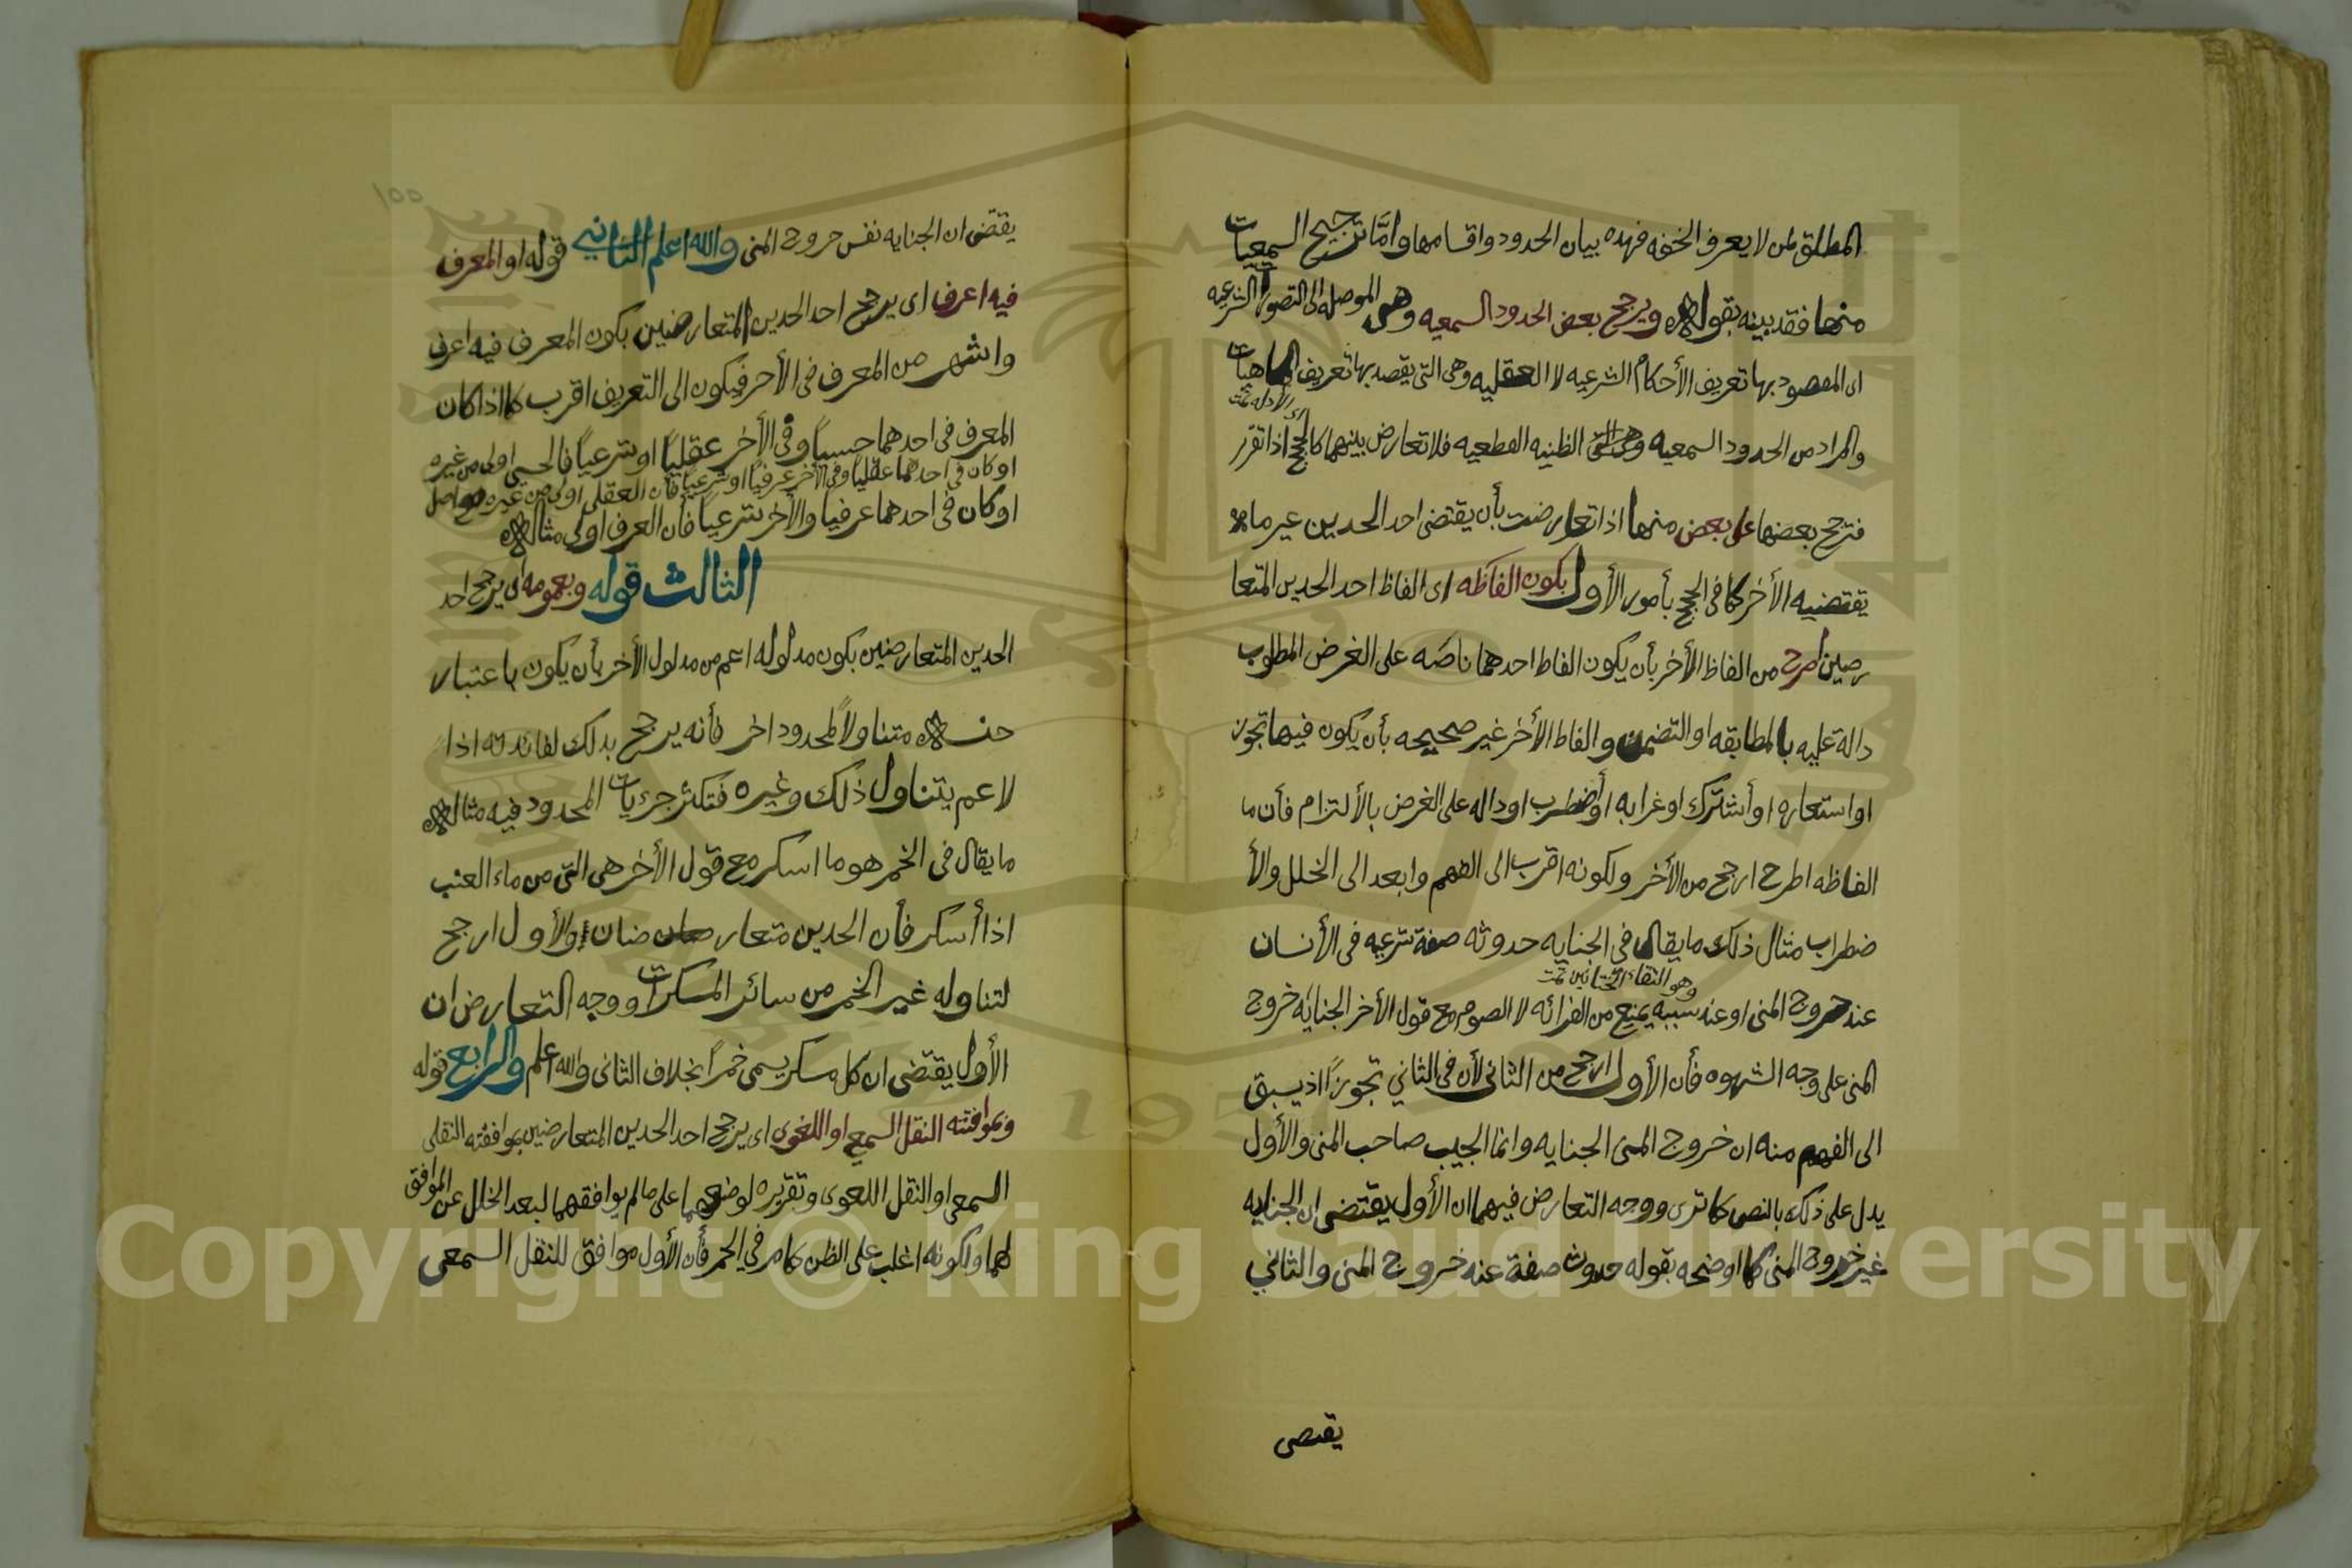 المطلق لمن لا يعرف الخنفه فهذه بيان الحدود واقسامها وامَّا ترجيح السمعيات
منها فقد بينه بقوله ويرجح بعض الحدود السمعيه وهى الموصله الى التصورات الشرعيه
اى المقصود بها تعريف الأحكام الشرعيه لا العقليه وهى التى يقصد بها تعريف الماهيات
اى الادله تمت
والمراد من الحدود السمعيه الظنيه القطعيه فلا تعارض بينهما كالحجج اذا تقرر
فترجح بعضها على بعض منها اذا تعارضت بأن يقتضى احد الحدين غير ما
يقتضيه الأخر كما فى الحجج بأمور الأول بكون الفاظه اى الفاظ احد الحدين المتعا
رضين اصرح من الفاظ الأخر بأن يكون الفاظ احدهما ناصَه على الغرض المطلوب
دالة عليه بالمطابقه او التضمن والفاظ الأخر غير صحيحه بأن يكون فيها تجوز
او استعاره او أشتَرك او غرابه او أضطرب او داله على الغرض بالألتزام فأن ما
الفاظه اطرح ارجح من الأخر ولكونه اقرب الى الفهم وابعد الى الخلل والأ
ضطراب مثال ذلك ما يقال فى الجنايه حدوثه صفة شرعيه فى الأنسان
وهو التقاء الختانين تمت
عند خروج المنى او عند سببه يمنع من القرائه لا الصوم مع قول الأخر الجنايَه خروج
المنى على وجه الشهوه فأن الأول ارجح من الثانى لأن فى الثاني تجوزاً اذ يسبق
الى الفهم منه ان خروج المنى الجنايه وانما الجيب صاحب المنى والأول
يدل على ذلك بالنص كما ترى ووجه التعارض فيهما ان الأول يقتضى ان الجنايه
غير خروج المنى كما اوضحه بقوله حدوث صفة عند خروج المنى والثاني
يقتصى
١٥٥
يقتضى ان الجنايه نفس خروج المنى والله اعلم الثاني قوله او المعرف
فيه اعرف اى يرجح احد الحدين المتعارضين بكون المعرف فيه اعرف
واشهر من المعرف فى الأخر فيكون الى التعريف اقرب كما اذا كان
المعرف فى احدهما حسياً وفى الأخر عقلياً او شرعياً فالحسي اولى من غيره
او كان فى احدهما عقلياً وفى الأخر عرفياً او شرعياً فأن العقلى اولى من غيره صح اصل
او كان فى احدهما عرفيا والأخر شرعياً فأن العرف اولى مثاله
الثالث قوله وبعمومه اى يرجح احد
الحدين المتعارضين بكون مدلوله اعم من مدلول الأخر بأن يكون باعتبار
متناولاً لمحدود اخر فأنه يرجح بذلك لفائدته اذا
لاعم يتناول ذلك وغيره فتكثر جزءيات المحدود فيه مثاله
ما يقال فى الخمر هو ما اسكر مع قول الأخر هى التى من ماء العنب
اذا أسكر فأن الحدين متعار ضان والأول ارجح
لتناوله غير الخمر من سائر المسكرات ووجه التعارض ان
الأول يقتضى ان كل مسكر يسمى خمراً بخلاف الثانى والله اعلم والرابع قوله
وبموافقته النقل السمعى او اللغوى اى يرجح احد الحدين المتعارضين بموافقته النقلى
السمعى او النقل اللغوى وتقريره لوضعهما على ما لم يوافقهما لبعد الخلل عن الموافق
لهما ولكونه اغلب على الظن كما مر في الخمر فأن الأول موافق للنقل السمعى
Copyright © King Saud University
1957